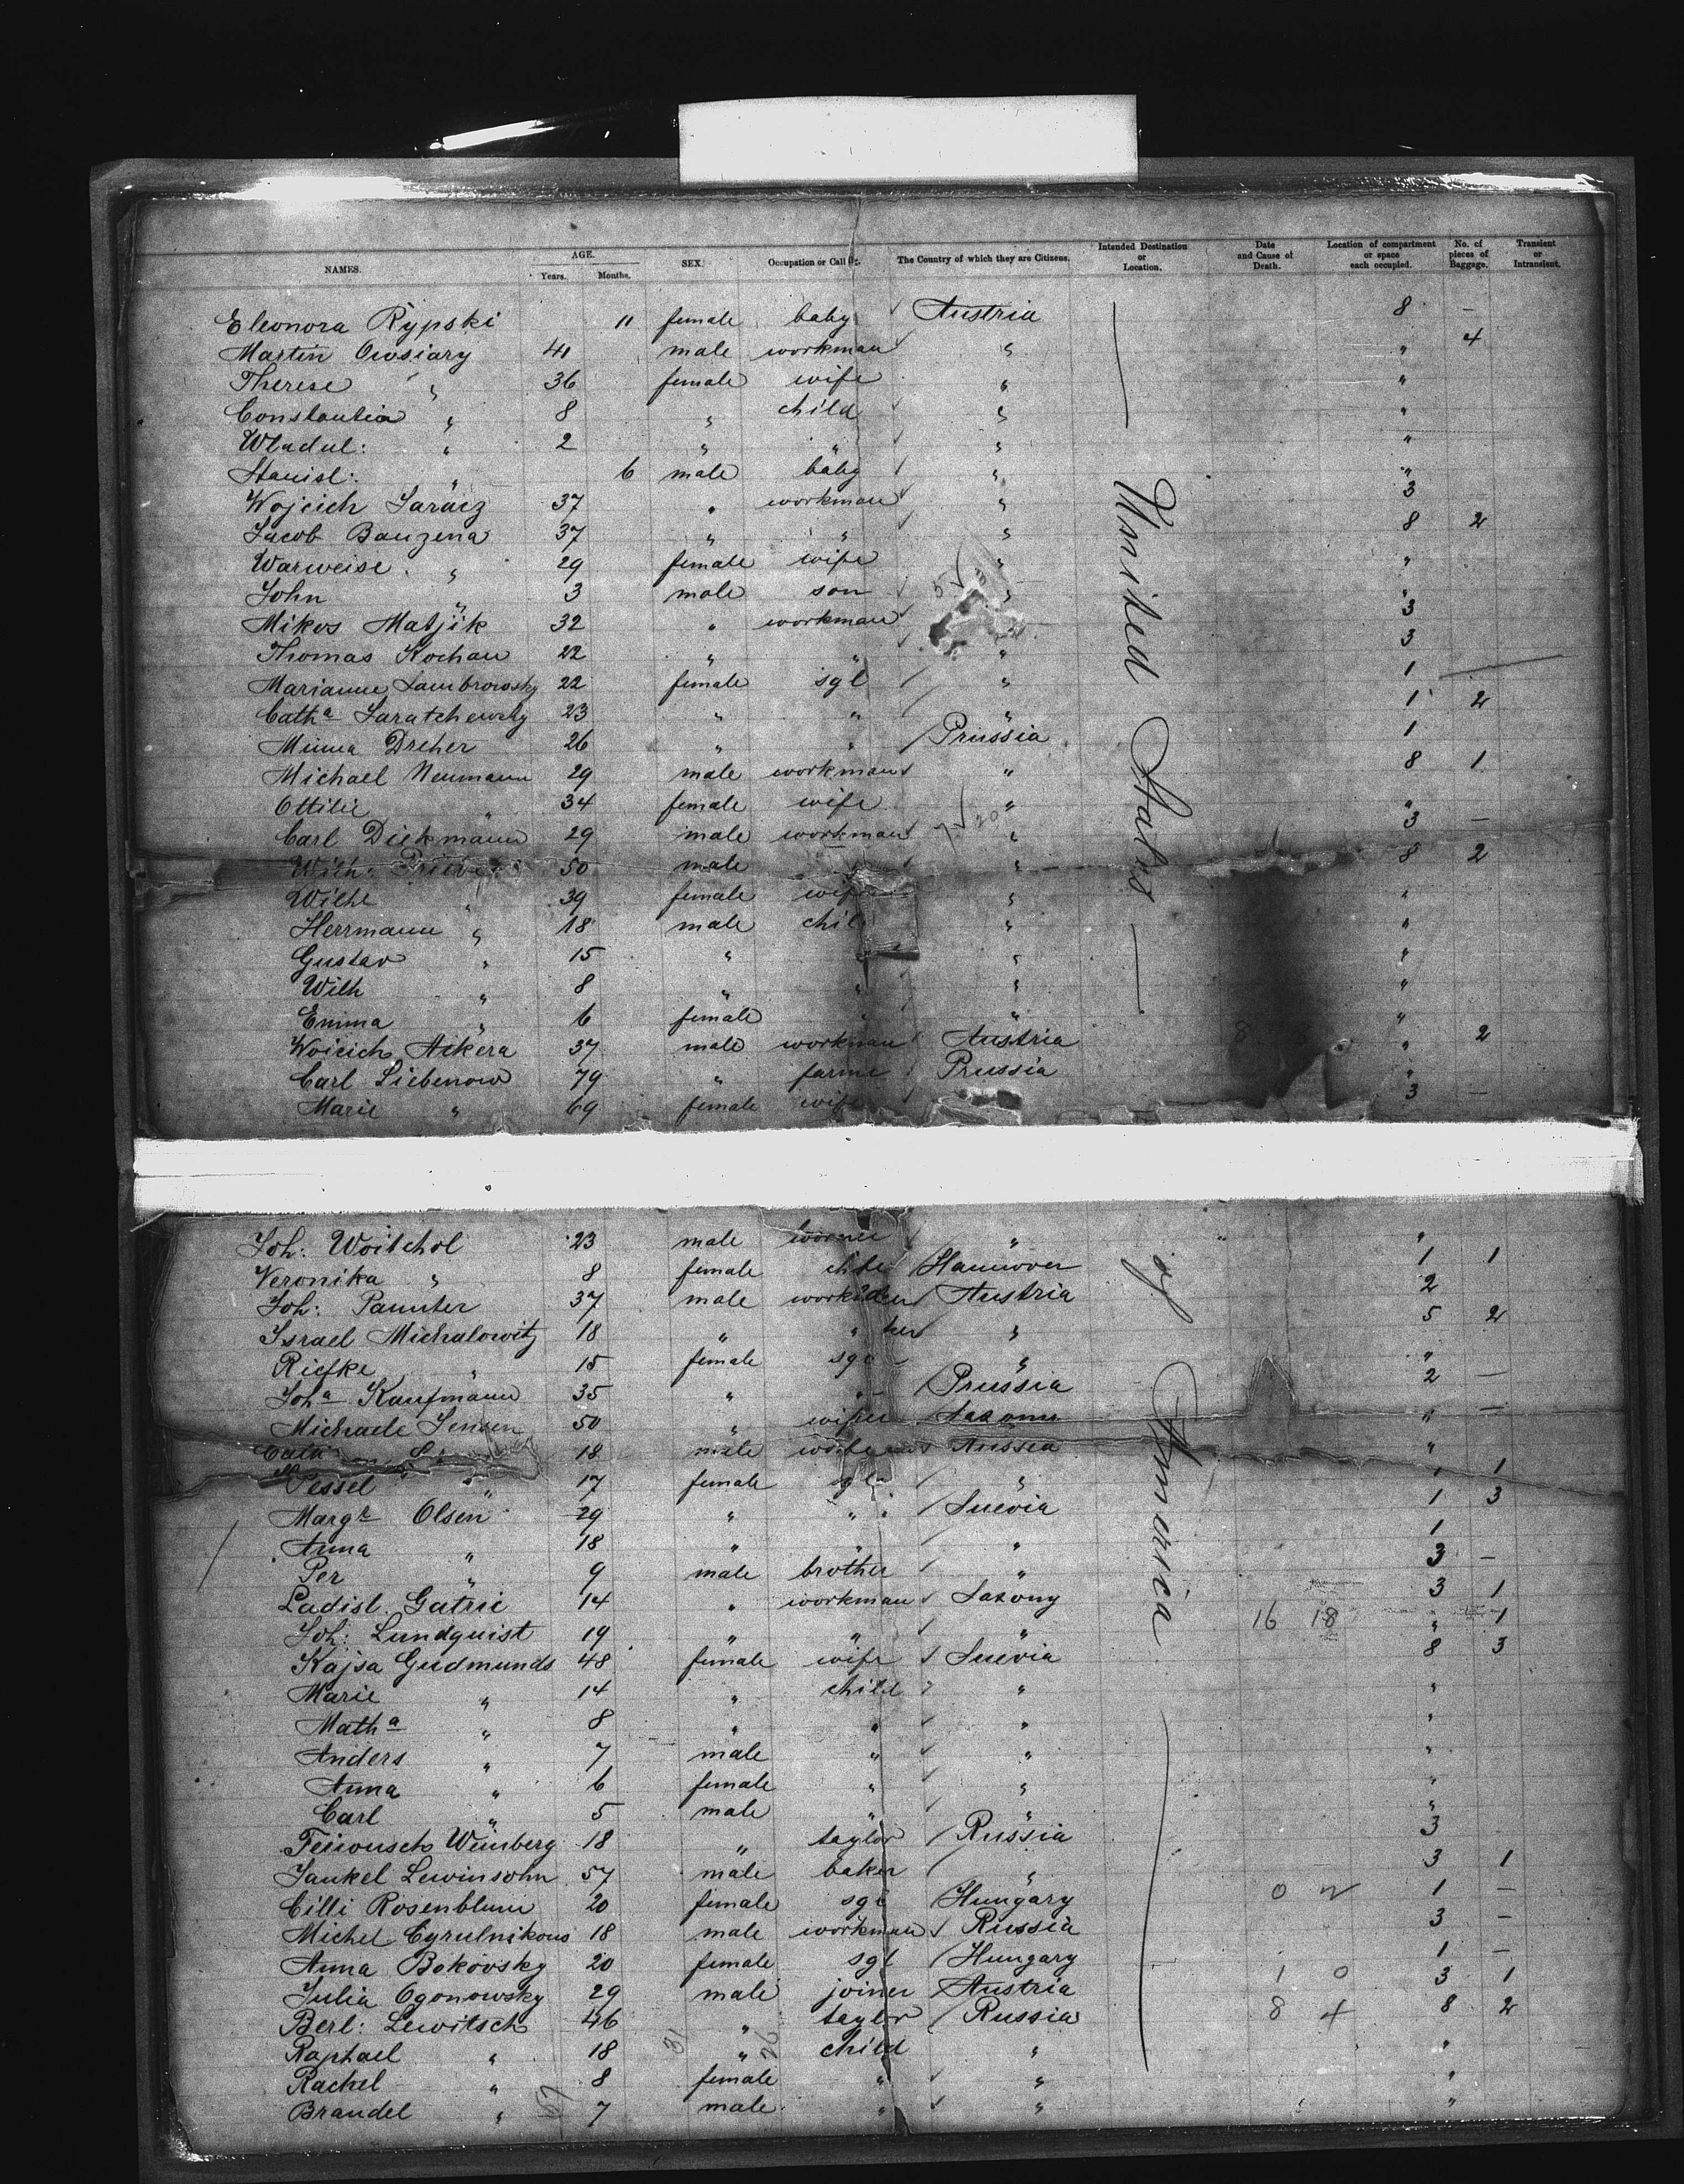 NAMES. AGE. Years. Months. SEX. Occupation or Calling. The Country of which they are Citizens. Intended Destination or Location. Date and Cause of Death. Location of compartment or space each occupied. No. of pieces of Baggage. Transient or Intransient.
Eleonora Rypski 11 female baby Austria 8 —
Martin Owsiary 41 male workman " " 4
Therese " 36 female wife " "
Constantia " 8 " child " "
Wladul: " 2 " " " "
Stanisl: " 6 male baby " "
Wojcich Saracz 37 " workman " 3
Jacob Bauzena 37 " " " 8 2
Warweise " 29 female wife " "
John " 3 male son " "
Mikos Matjik 32 " workman " 3
Thomas Kochan 22 " " " 3
Marianne Lambrowsky 22 female sgl " 1
Cath<sup>a</sup> Saratchewsky 23 " " " 1 2
Minna Dreher 26 " " Prussia 1
Michael Neumann 29 male workman " 8 1
Ottilie " 34 female wife " "
Carl Diekmann 29 male workman " 3 —
50 male " 8 2
Wilhe " 39 female wife " "
Herrmann " 18 male child " "
Gustav " 15 " " " "
Wilh " 8 " " " "
Emma " 6 female " " "
Woicich Sikera 37 male workman Austria " 2
Carl Liebenow 79 " farmer Prussia "
Marie " 69 female wife 3 —
United States
Joh: Woitchol 23 male " "
Veronika " 8 female child Hannover 1 1
Joh: Paunter 37 male Austria 2
Israel Michalowitz 18 " " 5 2
Riefke " 15 female sgl " "
Joh<sup>a</sup> Kaufmann 35 " " Prussia 2 —
Michaele Jensen 50 " Saxony " —
18 male Russia "
Pessel " 17 female sgl " 1 1
Marg<sup>r</sup> Olsen 29 " " Suevia 1 3
Anna " 18 " " " 1
Per " 9 male brother " 3 —
Ladisl. Gatric 14 " workman Saxony 3 1
Joh: Lundquist 19 " " " 16 18 " 1
Kajsa Gudmunds 48 female wife Suevia 8 3
Marie " 14 " child " "
Math<sup>a</sup> " 8 " " " "
Anders " 7 male " " "
Anna " 6 female " " "
Carl " 5 male " " "
Feiwusch Weinberg 18 " taylor Russia 3
Jankel Lewinsohn 57 male baker " 3 1
Cilli Rosenblum 20 female sgl Hungary 1 —
Michel Cyrulnikous 18 male workman Russia 3 —
Anna Bokovsky 20 female sgl Hungary 1 —
Julia Ogonowsky 29 male joiner Austria 1 0 3 1
Berl: Lewitsch 46 " taylor Russia 8 4 8 2
Raphael " 18 " child " "
Rachel " 8 female " " "
Brandel " 7 male " " "
of America